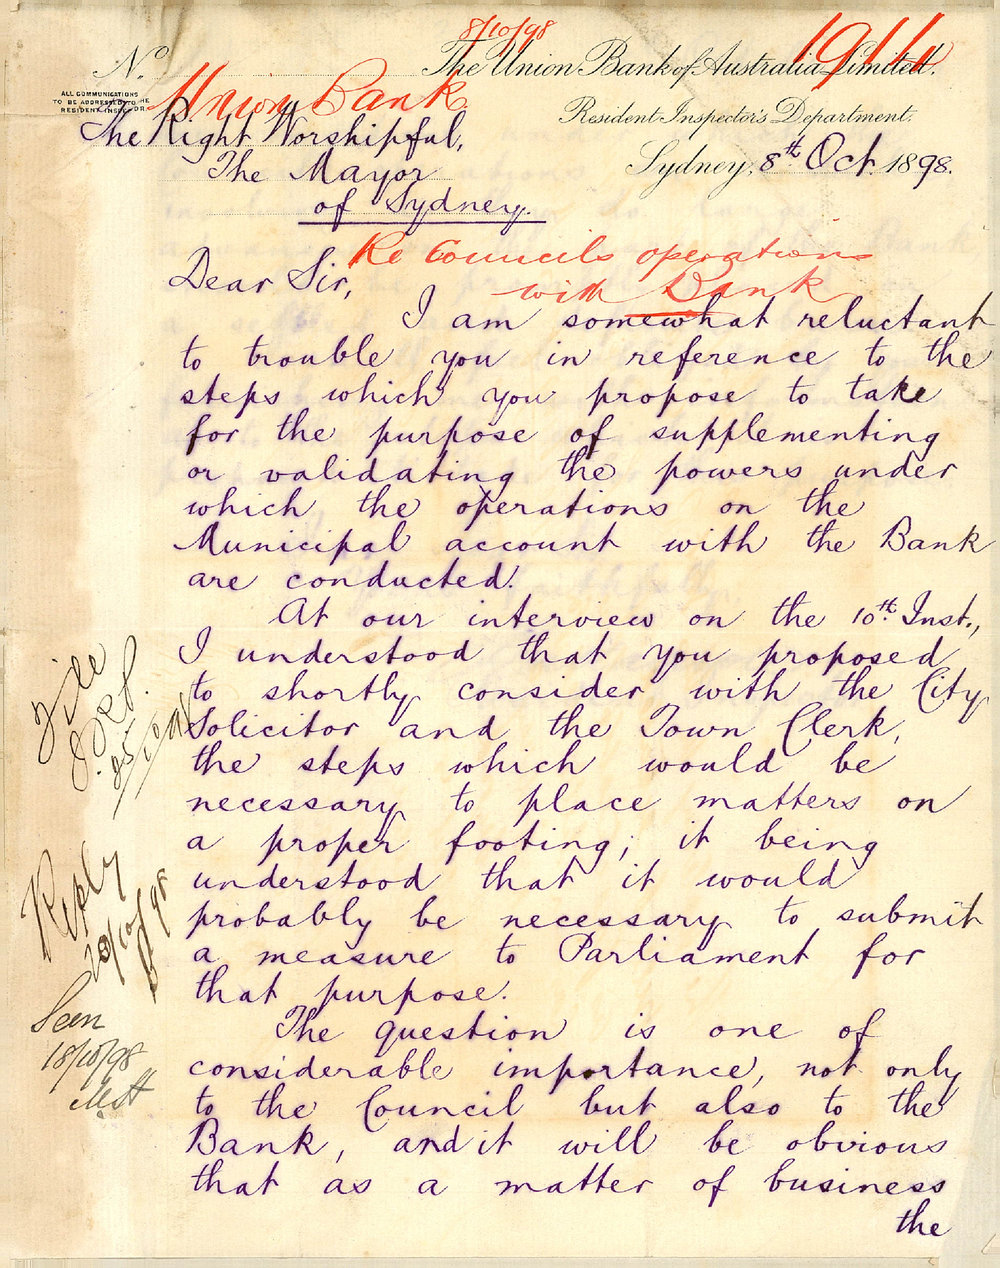 8/10/98
1911
No.
The Union Bank of Australia Limited.
ALL COMMUNICATIONS
TO BE ADDRESSED TO THE
RESIDENT INSPECTOR.
Union Bank.
Resident Inspector's Department.
The Right Worshipful,
Sydney, 8th Oct. 1898.
The Mayor
of Sydney.
Re Councils operations
with Bank
Dear Sir,
I am somewhat reluctant
to trouble you in reference to the
steps which you propose to take
for the purpose of supplementing
or validating the powers under
which the operations on the
Municipal account with the Bank
are conducted.
At our interview on the 10th. Inst.,
I understood that you proposed
to shortly consider with the City
Solicitor and the Town Clerk,
the steps which would be
necessary to place matters on
a proper footing; it being
understood that it would
probably be necessary to submit
a measure to Parliament for
that purpose.
The question is one of
considerable importance, not only
to the Council but also to the
Bank, and it will be obvious
that as a matter of business
the
File
25/10/98
Reply
20/10/98
Seen
18/10/98